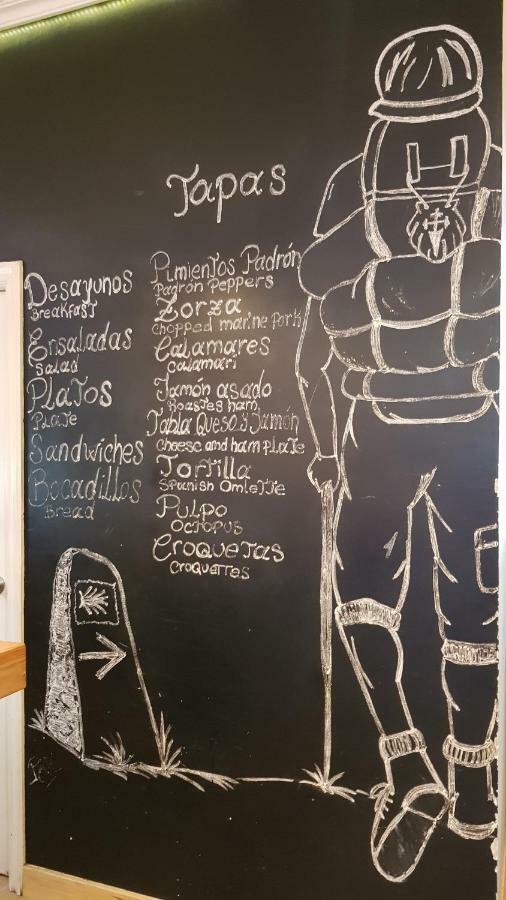 Tapas
Desayunos
Breakfast
Ensaladas
Salad
Platos
Plate
Sandwiches
Bocadillos
Bread
Pimientos Padrón
Padrón Peppers
Zorza
chopped marine Pork
Calamares
Calamari
Jamón asado
Roastes ham
Tabla Queso y Jamón
cheese and ham plate
Tortilla
Spanish Omlette
Pulpo
Octopus
Croquetas
Croquettes